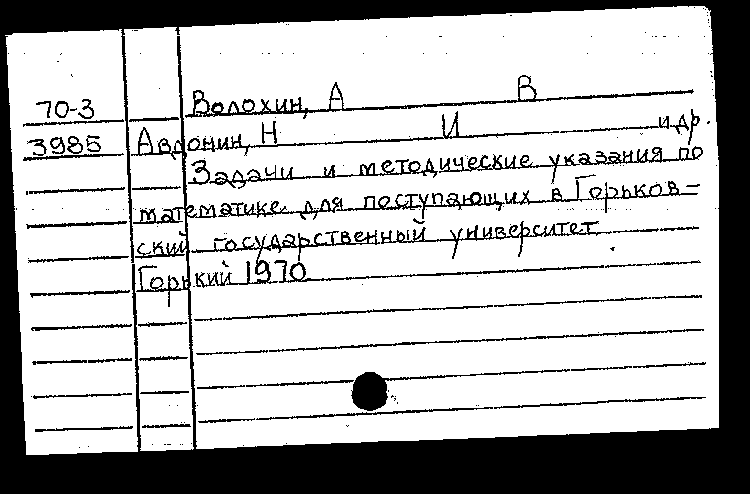 70-3 Волохин, А В
3985 Авдонин, Н И и др.
Задачи и методические указания по
математике для поступающих в Горьков-
ский государственный университет
Горький 1970